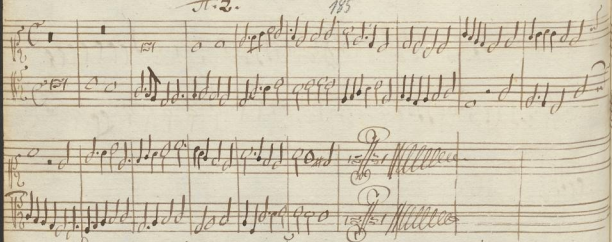 A. 2. 185